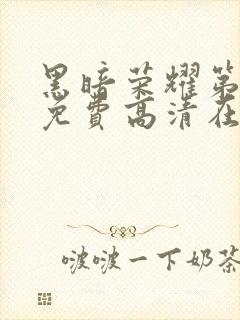 黑暗荣耀第
免费高清在
啵啵一下奶茶